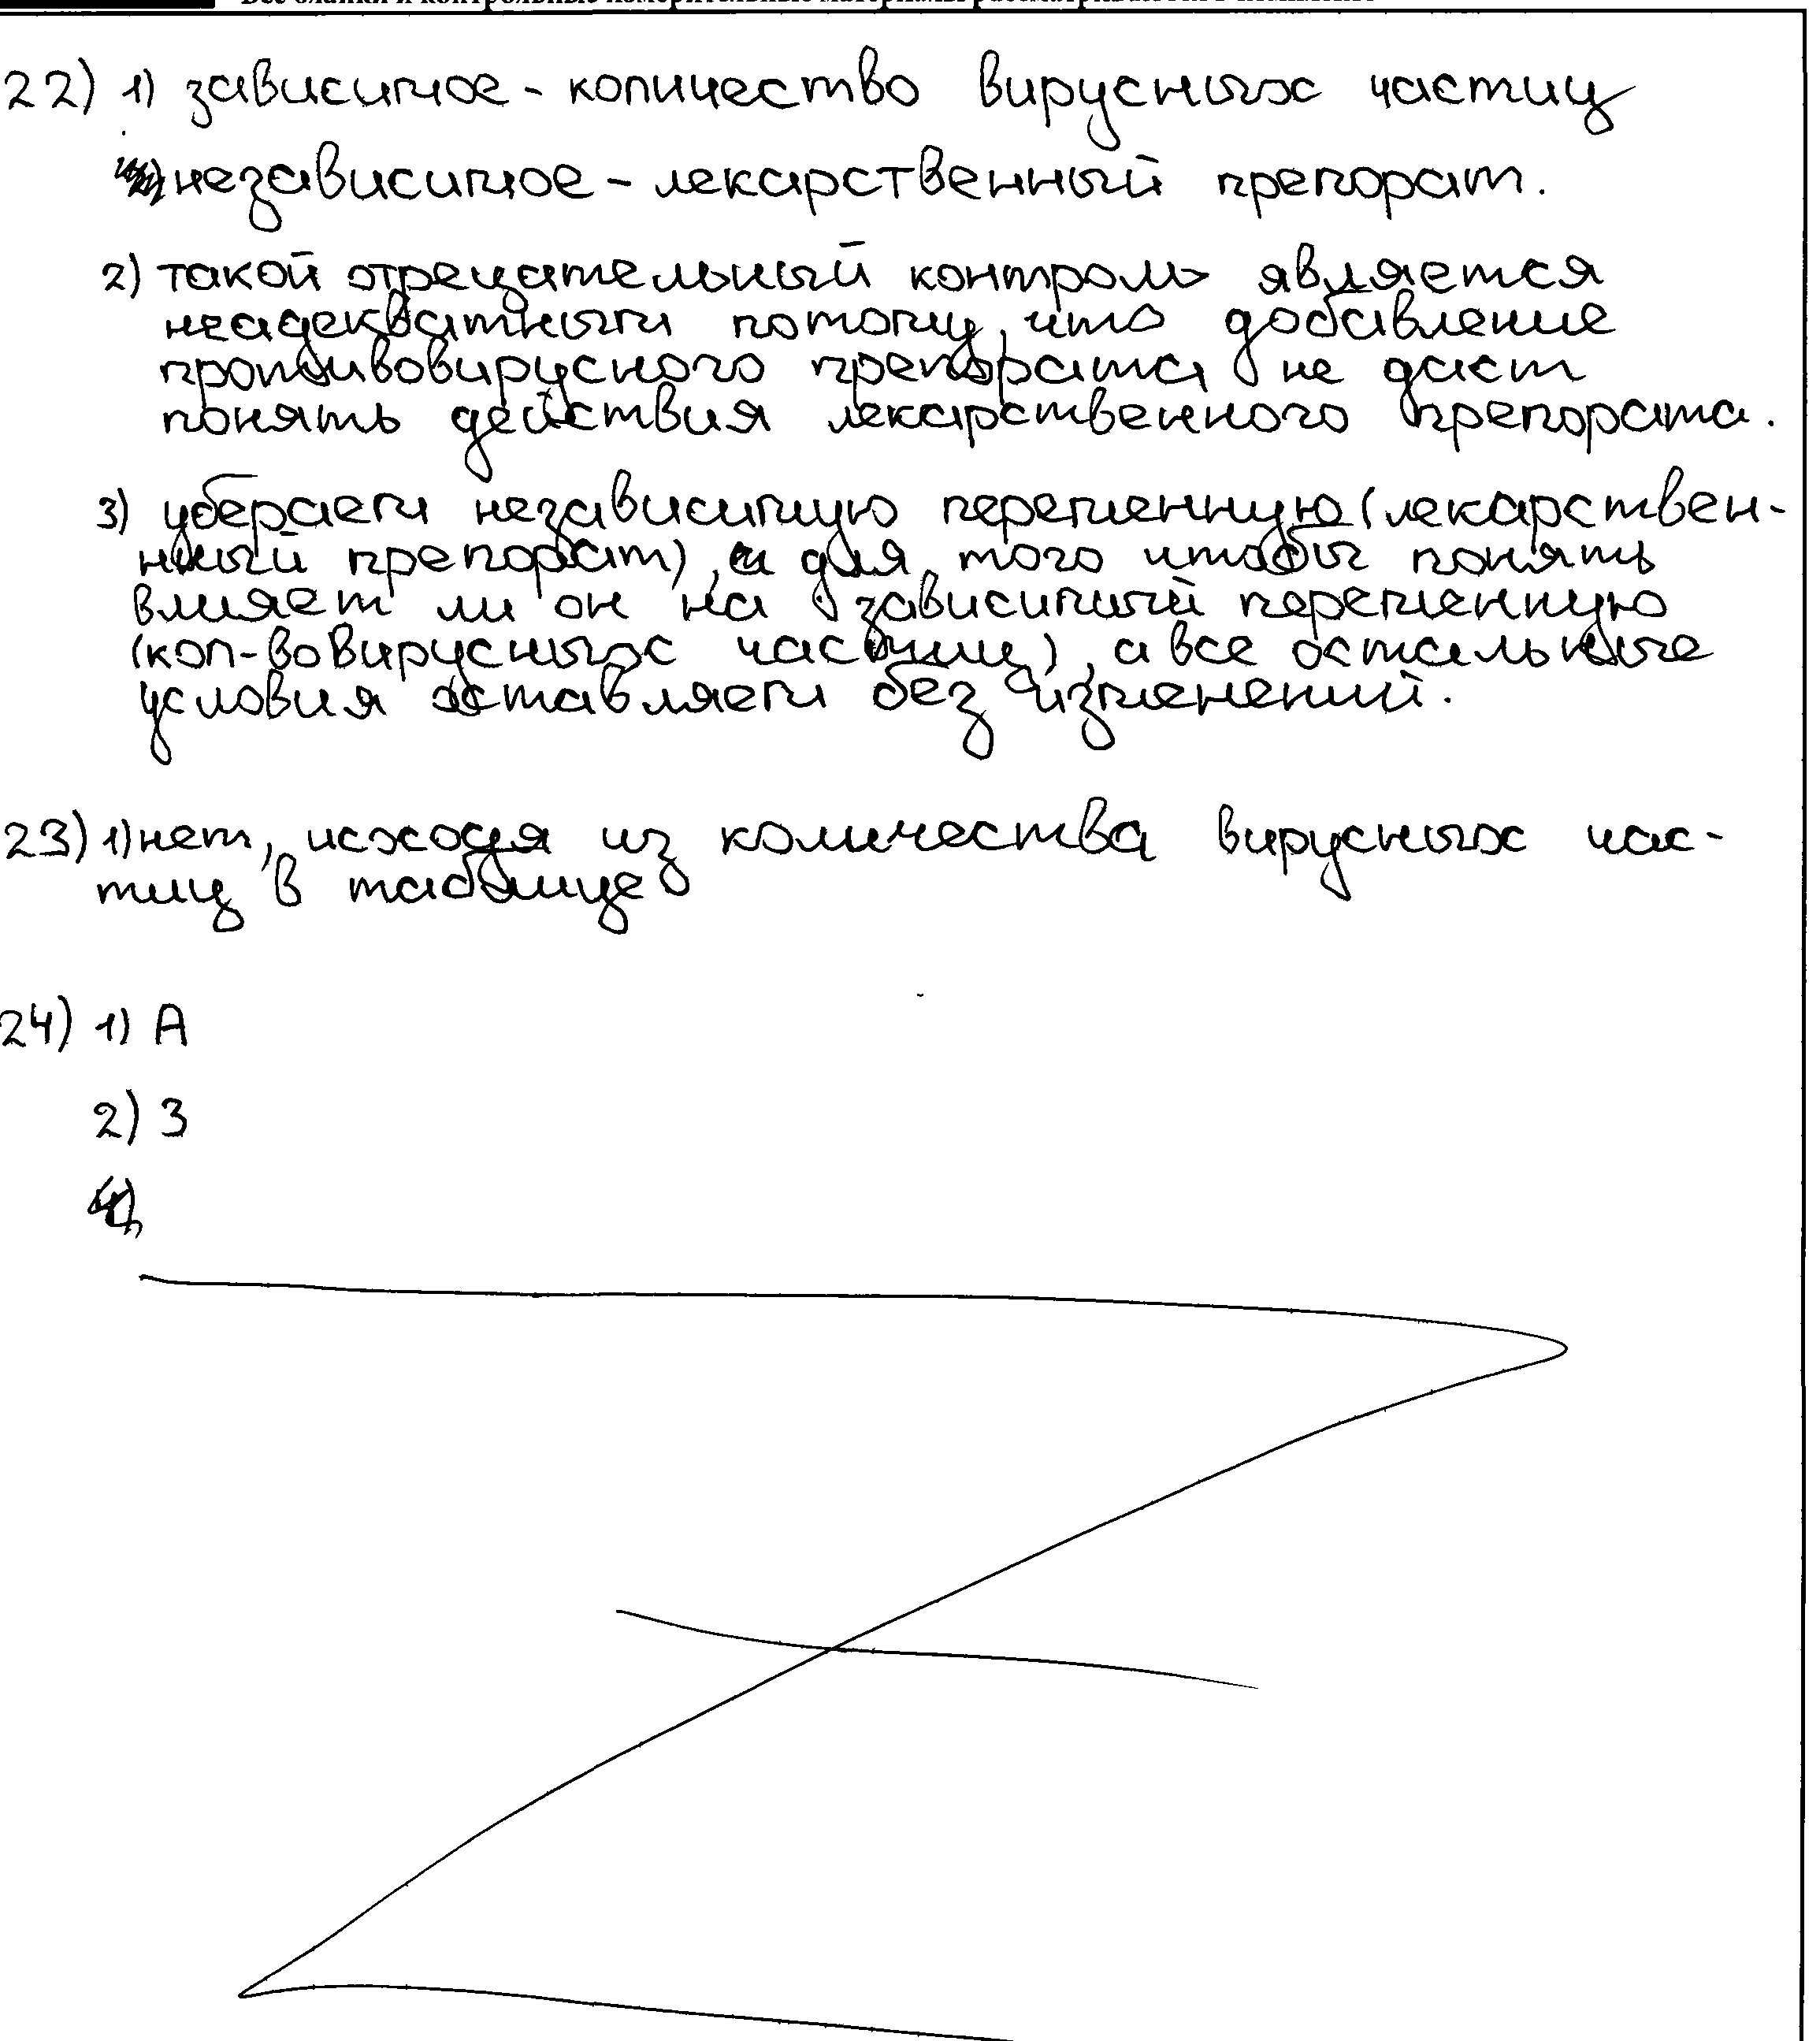 Все бланки и контрольные измерительные материалы рассматриваются в комплекте
22) 1) зависимое - количество вирусных частиц
независимое - лекарственный препорат.
2) такой отрецательный контроль является
неадекватным потому, что добавление
противовирусного препората не даст
понять действия лекарственного препората.
3) убераем независимую переменную (лекарствен-
нный препорат), и для того чтобы понять
влияет ли он на зависимый переменную
(кол-во вирусных частиц), а все остальные
условия оставляем без изменений.
23) 1) нет, исходя из количества вирусных час-
тиц в таблице
24) 1) А
2) 3